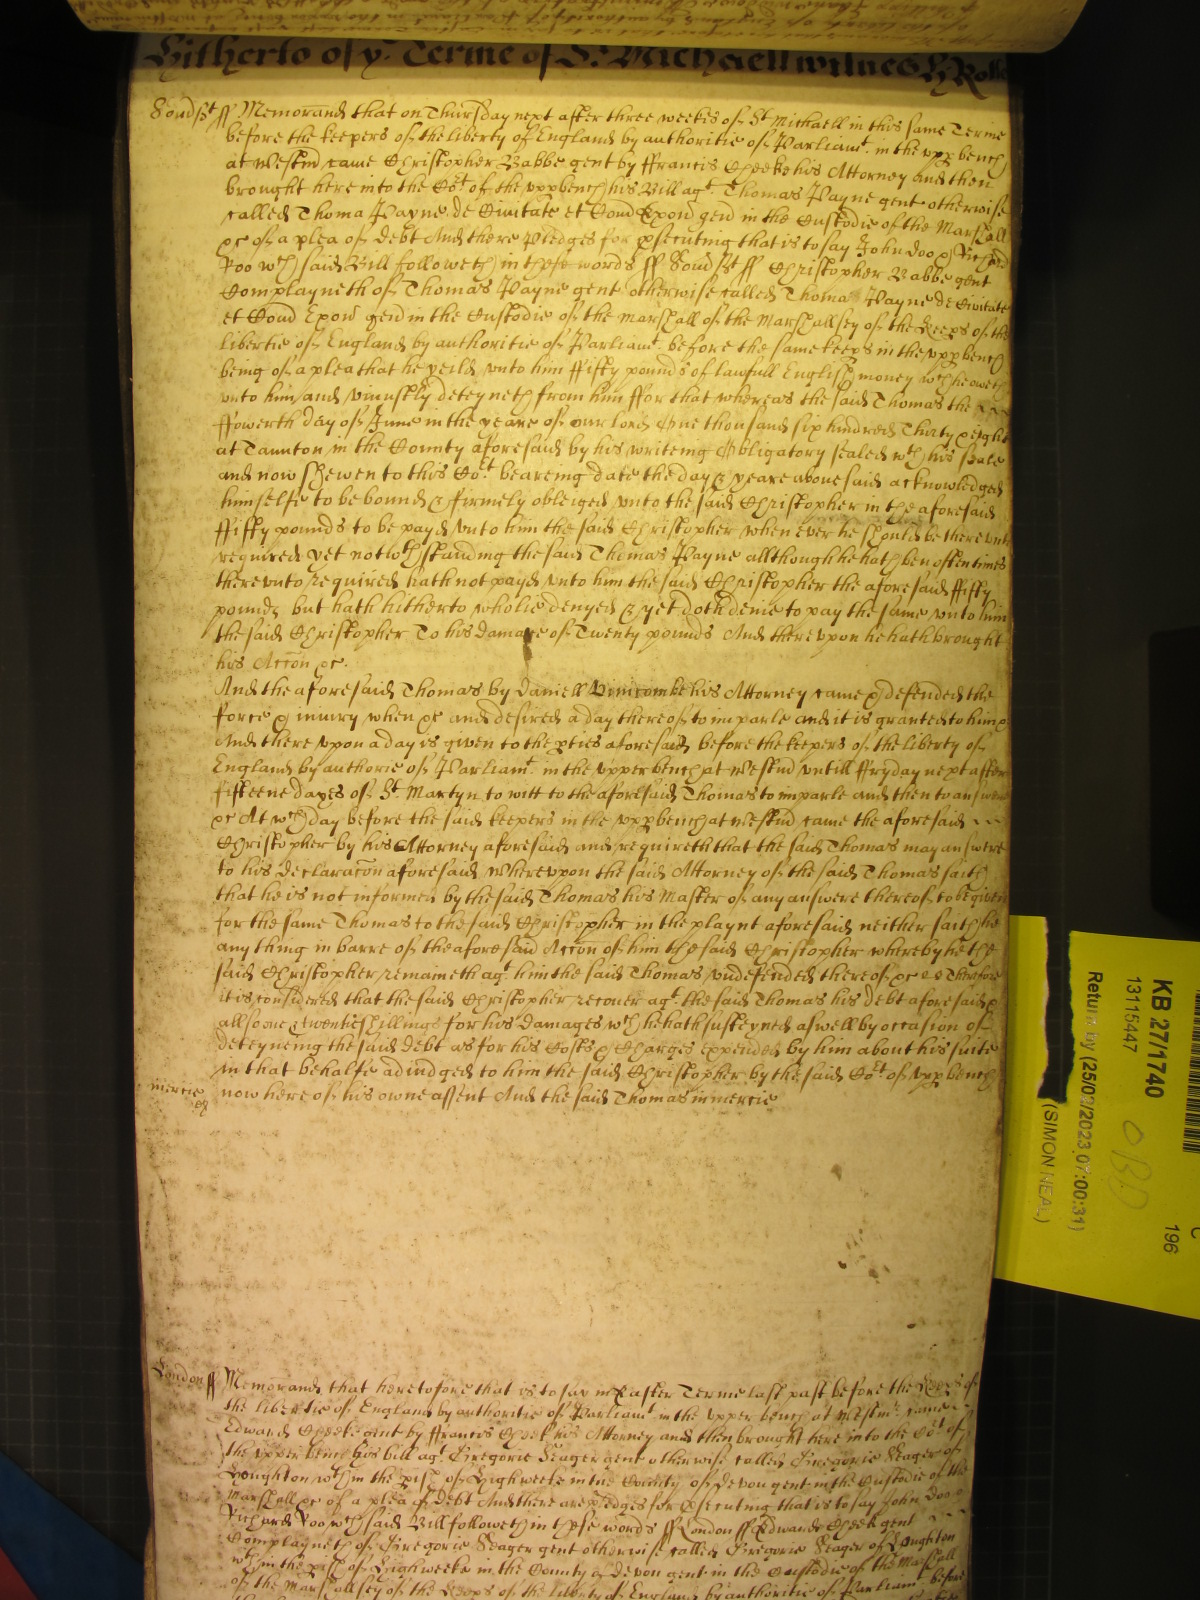 Hitherto of ye Terme of St Michaell witnes H Rolle
Somst ss Memorand that on Thursday next after three weekes of St Michaell in this same Terme
before the keepers of the liberty of England by authoritie of Parliamt in the upp bench
at Westm came Christopher Babbe gent by ffrancis Cheeke his Attorney And then
brought here into the Cort of the uppbench his Bill agt Thomas Payne gent otherwise
called Thoma Payne de Civitate et Cond Exon gen in the Custodie of the Marshall
&c of a plea of debt And there Pledges for psecuting that is to say John Doo & Richard
Roo wch said Bill followeth in these words ss Somst ss Christopher Babbe gent
Complayneth of Thomas Payne gent otherwise called Thoma Payne de Civitate
et Com Exon gen in the Custodie of the marshall of the Marshallsey of the keeps of the
libertie of England by authoritie of Parliamt before the same keeps in the uppbench
being of a plea that he yeild unto him ffifty pounds of lawfull English money wch he oweth
unto him and uniustly deteyneth from him ffor that whereas the said Thomas the
ffowerth day of June in the yeare of our lord One thousand six hundred Thirty & eight
at Taunton in the County aforesaid by his writeing Obligatory sealed wth his seale
and now shewen to this Cort beareing date the day & yeare abovesaid acknowledged
himselfe to be bound & firmely obleiged unto the said Christopher in the aforesaid
ffifty pounds to be payd unto him the said Christopher when ever he should be there unto
required yet notwthstanding the said Thomas Payne allthough he hath ben often times
thereunto required hath not payd unto him the said Christopher the aforesaid ffifty
pounds but hath hitherto wholie denyed & yet doth denie to pay the same unto him
the said Christopher To his damage of Twenty pounds And thereupon he hath brought
his Accon &c.
And the aforesaid Thomas by Daniell Vinicombe his Attorney came & defended the
force & iniury when &c and desired a day thereof to imparle and it is granted to him &c
And there upon a day is given to the pties aforesaid before the keepers of the liberty of
England by authorie of Parliamt in the upper bench at Westm untill ffryday next after
fifteene dayes of St Martyn to witt to the aforesaid Thomas to imparle and then to answere
&c At wch day before the said keepers in the uppbench at Westm came the aforesaid
Christopher by his Attorney aforesaid and requireth that the said Thomas may answere
to his declaracon aforesaid Whereupon the said Attorney of the said Thomas saith
that he is not informed by the said Thomas his Master of any answere thereof to be given
for the same Thomas to the said Christopher in the playnt aforesaid neither saith he
any thing in barre of the aforesaid Accon of him the said Christopher whereby he the
said Christopher remaineth agt him the said Thomas undefended thereof &c Therefore
it is considered that the said Christopher recover agt the said Thomas his debt aforesaid &
allsoe twentie shillings for his damages wch he hath susteyned aswell by occasion of
deteyneing the said debt as for his Costs & Charges expended by him about his suite
in that behalfe adiudged to him the said Christopher by the said Cort of uppbench
mercie now here of his owne assent And the said Thomas in mercie
London ss Memorand that heretofore that is to say in Easter Terme last past before the keeps of
the libertie of England by authoritie of Parliamt in the upper bench at Westmr came
Edward Cheeke gent by ffrancis Cheek his Attorney and then brought here into the Cort of
the upper bench his bill agt Gregorie Seager gent otherwise called Gregorie Seager of
Houghton wthin the pish of Highweeke in the County of Devon gent in the Custodie of the
Marshall &c of a plea of debt And there are pledges for psecuting that is to say John Doo &
Richard Roo wch said Bill followeth in these words ss London ss Edward Cheek gent
Complayneth of Gregorie Seager gent otherwise called Gregorie Seager of Houghton
wthin the pish of Highweeke in the County of Devon gent in the Custodie of the Marshall
of the Marshallsey of the keeps of the liberty of England by authoritie of Parliamt before
KB 27/1740
13115447
Return by (25/03/2023 07:00:31)
(SIMON NEAL)
196